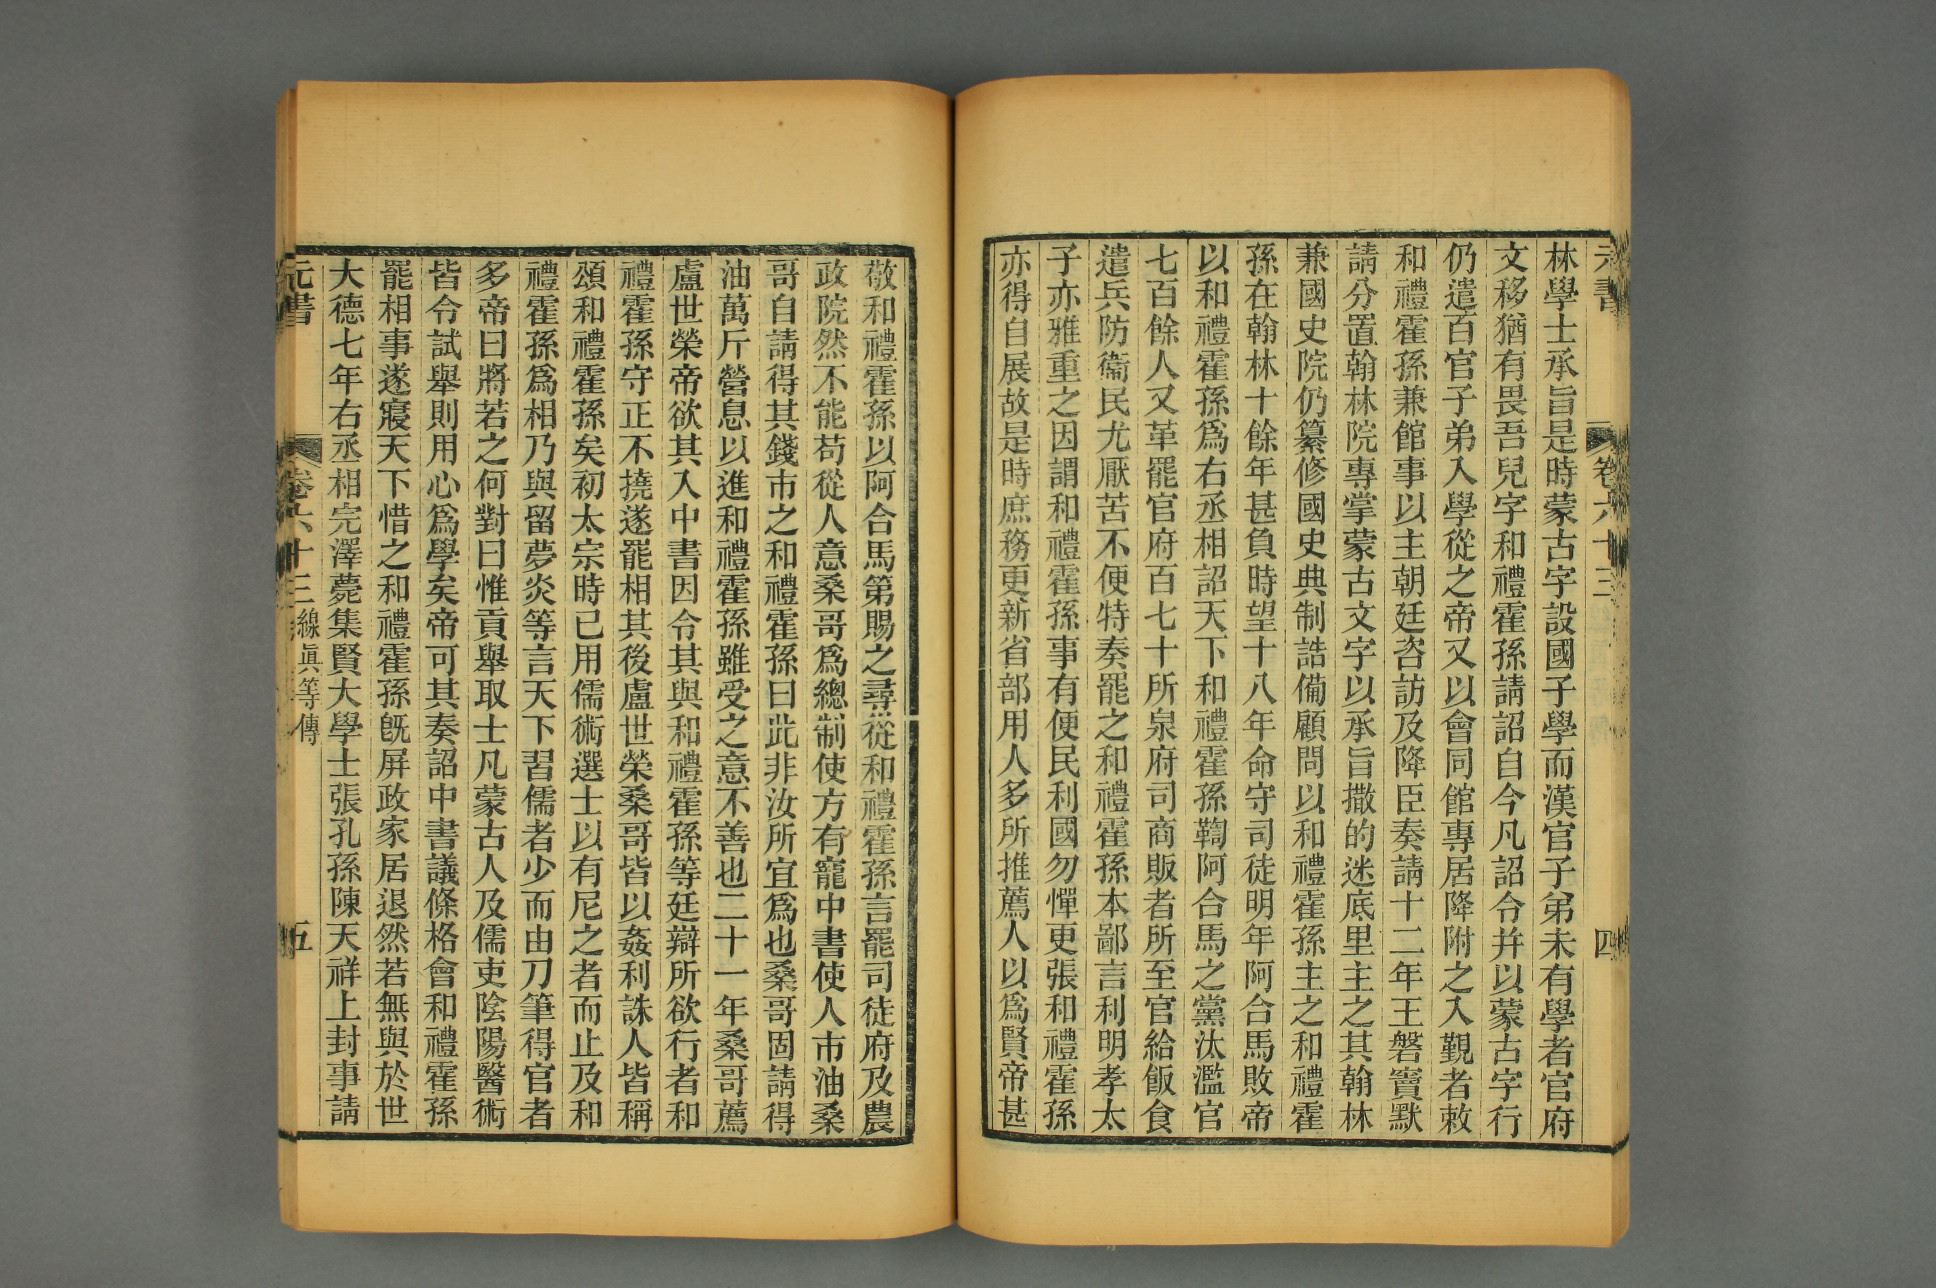 元書 卷六十三 四
林學士承旨是時蒙古字設國子學而漢官子弟未有學者官府
文移猶有畏吾兒字和禮霍孫請詔自今凡詔令并以蒙古字行
仍遣百官子弟入學從之帝又以會同館專居降附之入覲者敕
和禮霍孫兼館事以主朝廷咨訪及降臣奏請十二年王磐竇默
請分置翰林院專掌蒙古文字以承旨撒的迷底里主之其翰林
兼國史院仍纂修國史典制誥備顧問以和禮霍孫主之和禮霍
孫在翰林十餘年甚負時望十八年命守司徒明年阿合馬敗帝
以和禮霍孫爲右丞相詔天下和禮霍孫鞫阿合馬之黨汰濫官
七百餘人又革罷官府百七十所泉府司商販者所至官給飯食
遣兵防衞民尤厭苦不便特奏罷之和禮霍孫本鄙言利明孝太
子亦雅重之因謂和禮霍孫事有便民利國勿憚更張和禮霍孫
亦得自展故是時庶務更新省部用人多所推薦人以爲賢帝甚
敬和禮霍孫以阿合馬第賜之尋從和禮霍孫言罷司徒府及農
政院然不能苟從人意桑哥爲總制使方有寵中書使人市油桑
哥自請得其錢市之和禮霍孫曰此非汝所宜爲也桑哥固請得
油萬斤營息以進和禮霍孫雖受之意不善也二十一年桑哥薦
盧世榮帝欲其入中書因令其與和禮霍孫等廷辯所欲行者和
禮霍孫守正不撓遂罷相其後盧世榮桑哥皆以姦利誅人皆稱
頌和禮霍孫矣初太宗時已用儒術選士以有尼之者而止及和
禮霍孫爲相乃與留夢炎等言天下習儒者少而由刀筆得官者
多帝曰將若之何對曰惟貢舉取士凡蒙古人及儒吏陰陽醫術
皆令試舉則用心爲學矣帝可其奏詔中書議條格會和禮霍孫
罷相事遂寢天下惜之和禮霍孫旣屏政家居退然若無與於世
大德七年右丞相完澤薨集賢大學士張孔孫陳天祥上封事請
元書 卷六十三 線眞等傳 五